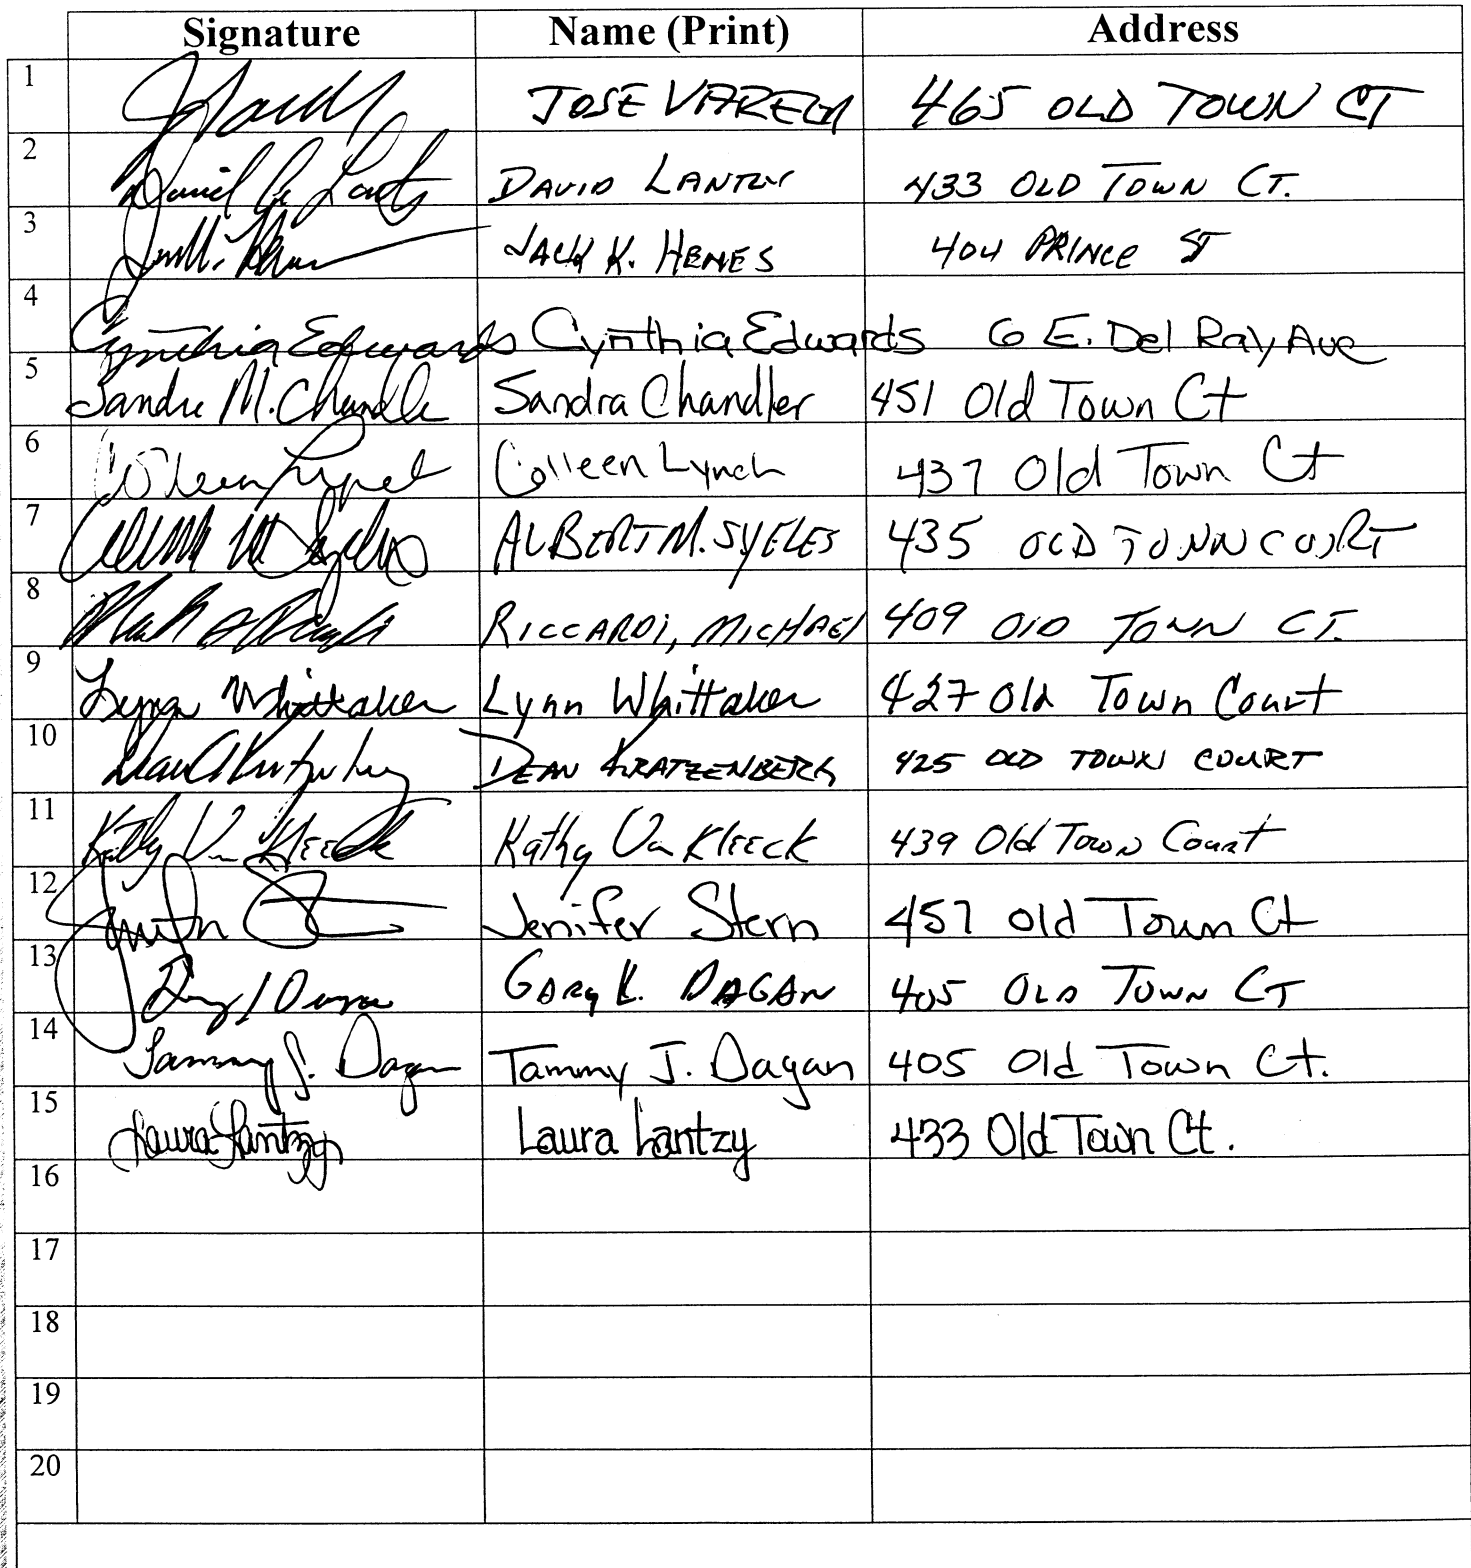 Signature Name (Print) Address
1 JOSE VARELA 465 OLD TOWN CT
2 David A. Lantzy DAVID LANTZY 433 OLD TOWN CT.
3 JACK K. HENES 404 PRINCE ST
4 Cynthia Edwards Cynthia Edwards 6 E. Del Ray Ave
5 Sandra M. Chandler Sandra Chandler 451 Old Town Ct
6 Colleen Lynch Colleen Lynch 437 Old Town Ct
7 Albert M Syeles ALBERT M. SYELES 435 OLD TOWN COURT
8 RICCARDI, MICHAEL 409 OLD TOWN CT.
9 Lynn Whittaker Lynn Whittaker 427 Old Town Court
10 Dean Kratzenberg DEAN KRATZENBERG 425 OLD TOWN COURT
11 Kathy Van Kleeck Kathy Van Kleeck 439 Old Town Court
12 Jenifer Stern 457 Old Town Ct
13 GARY K. DAGAN 405 OLD TOWN CT
14 Tammy J. Dagan Tammy J. Dagan 405 Old Town Ct.
15 Laura Lantzy Laura Lantzy 433 Old Town Ct.
16
17
18
19
20